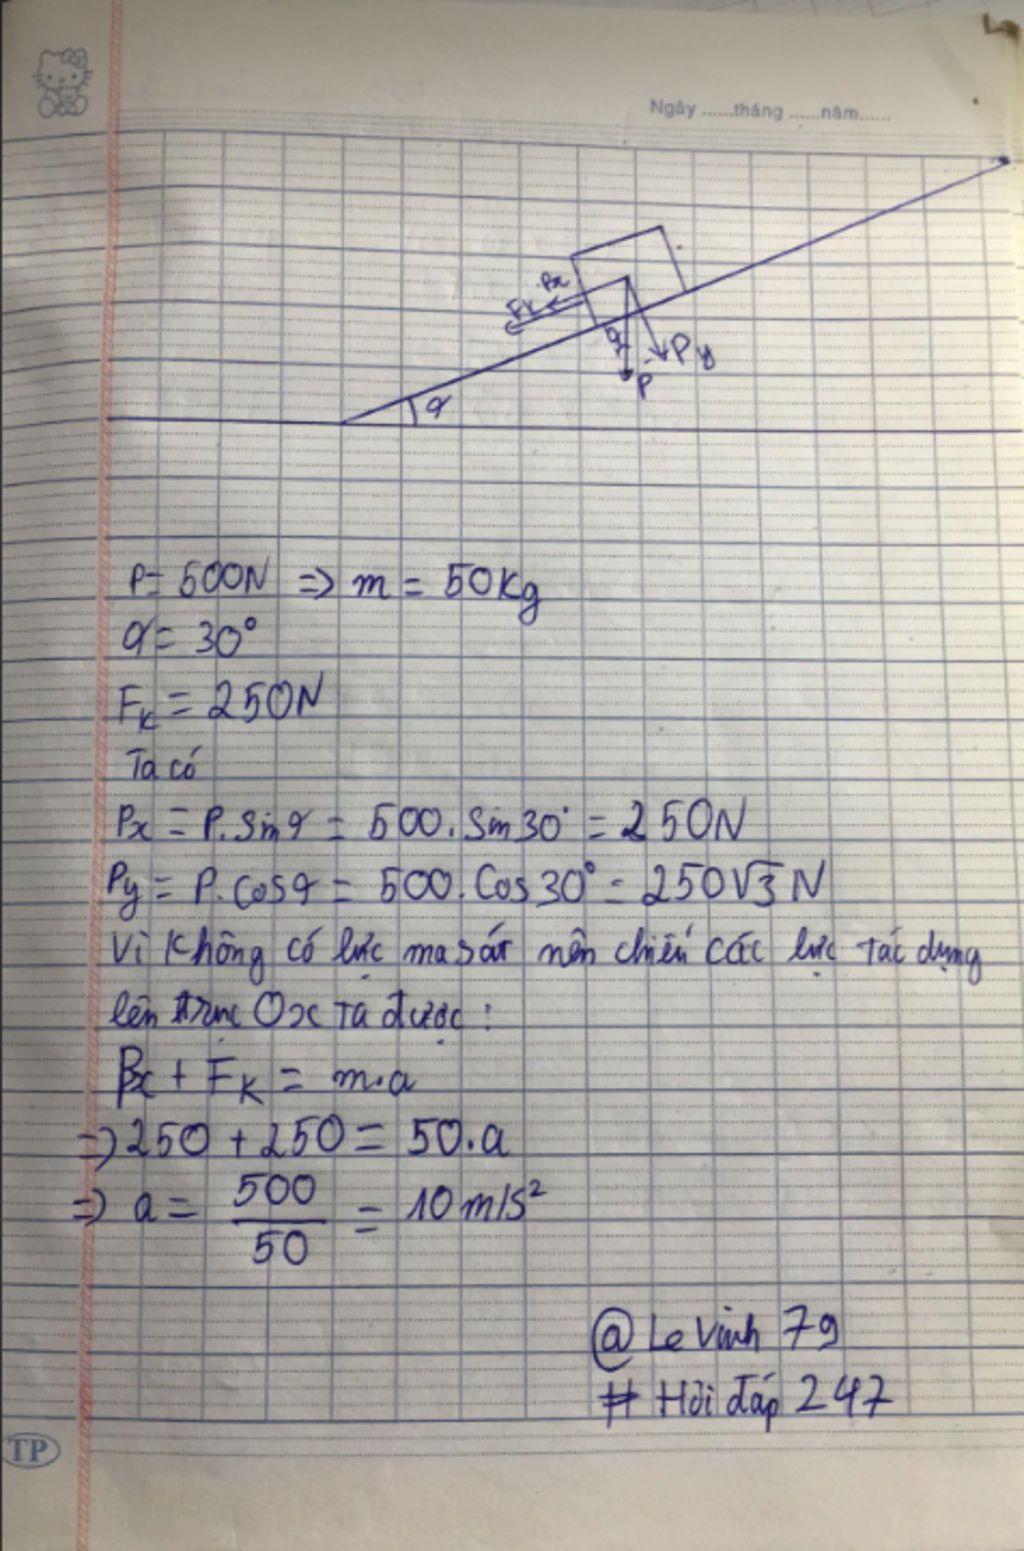 Ngày ......tháng ......năm......
Px
Fk
α
Py
P
α
P= 500N => m = 50Kg
α= 30°
Fk = 250N
Ta có
Px = P.Sinα = 500.Sin30° = 250N
Py = P.Cosα = 500.Cos30° = 250√3 N
Vì Không có lực ma sát nên chiếu các lực tác dụng
lên trục Ox ta được:
Px + Fk = m.a
=> 250 + 250 = 50.a
=> a = 500/50 = 10 m/s²
@ Le Vinh 79
# Hỏi đáp 247
TP